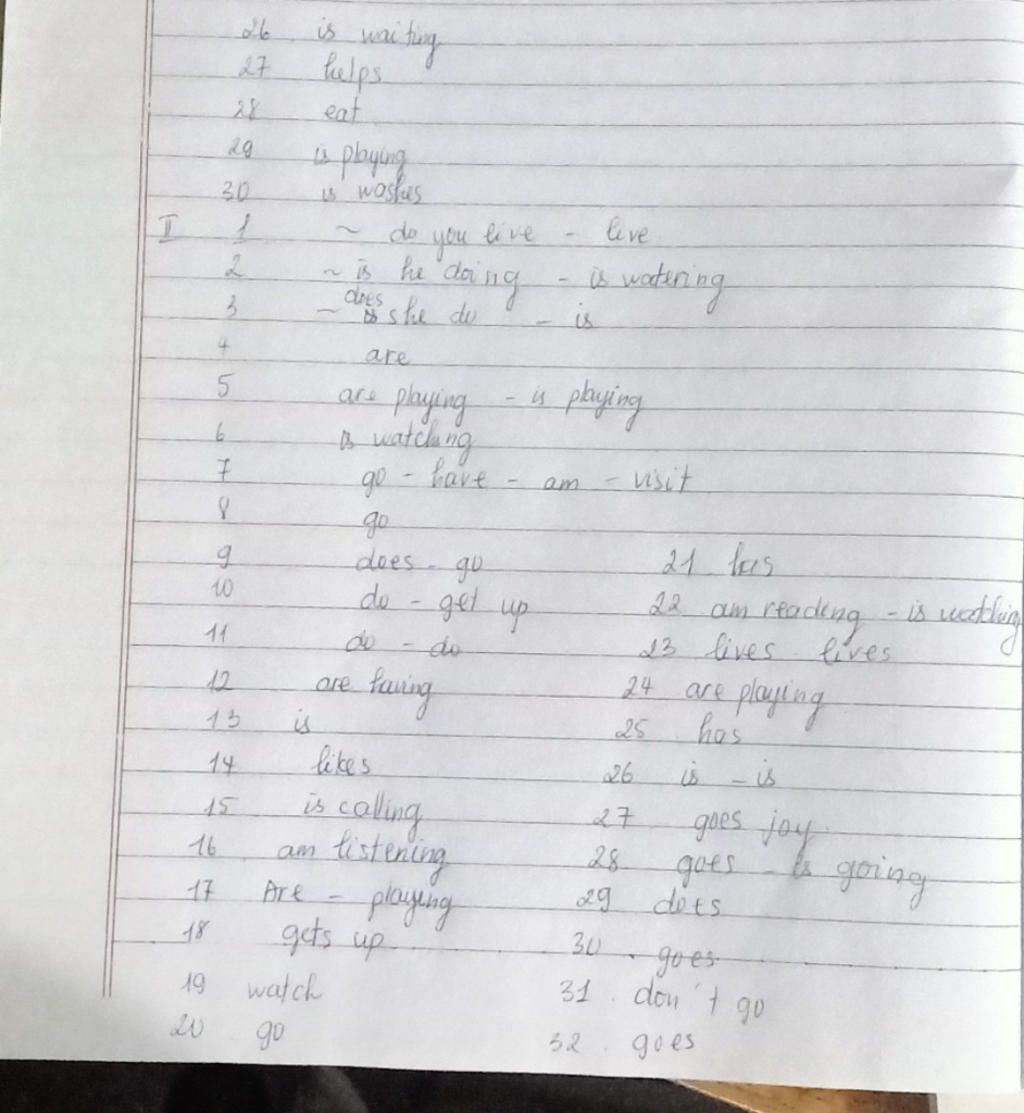 26 . is waiting
27 helps
28 eat
29 is playing
30 is washes
II 1 ~ do you live - live
2 ~ is he doing - is watering
3 ~ does she do - is
4 are
5 are playing - is playing
6 is watching
7 go - have - am - visit
8 go
9 does - go
10 do - get up
11 do - do
12 are having
13 is
14 likes
15 is calling
16 am listening
17 Are - playing
18 gets up
19 watch
20 go
21 has
22 am reading - is watching
23 lives - lives
24 are playing
25 has
26 is - is
27 goes joy
28 goes - is going
29 does
30 . goes
31 . don't go
32 . goes